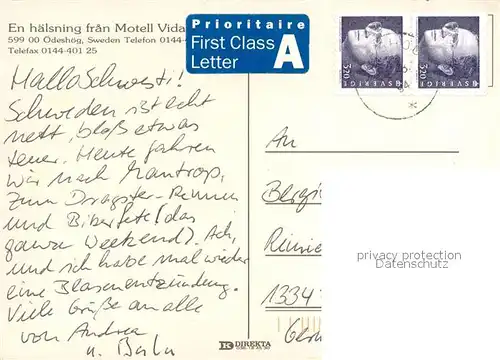 En hälsning från Motell Vida
599 00 Ödeshög, Sweden Telefon 0144-
Telefax 0144-401 25
Prioritaire
First Class
Letter
A
320 SVERIGE
320 SVERIGE
Hallo Schwesti!
Schweden ist echt
nett, bloß etwas
teuer. Heute fahren
wir nach Mantrop,
zum Dragster-Rennen
und Biberfete (das
ganze Weekend). Ach,
und ich habe mal wieder
eine Blasenentzündung.
Viele Grüße an alle
von Andrea
u.
An
Bergi
Reinie
1334
Germ
privacy protection
Datenschutz
DIREKTA